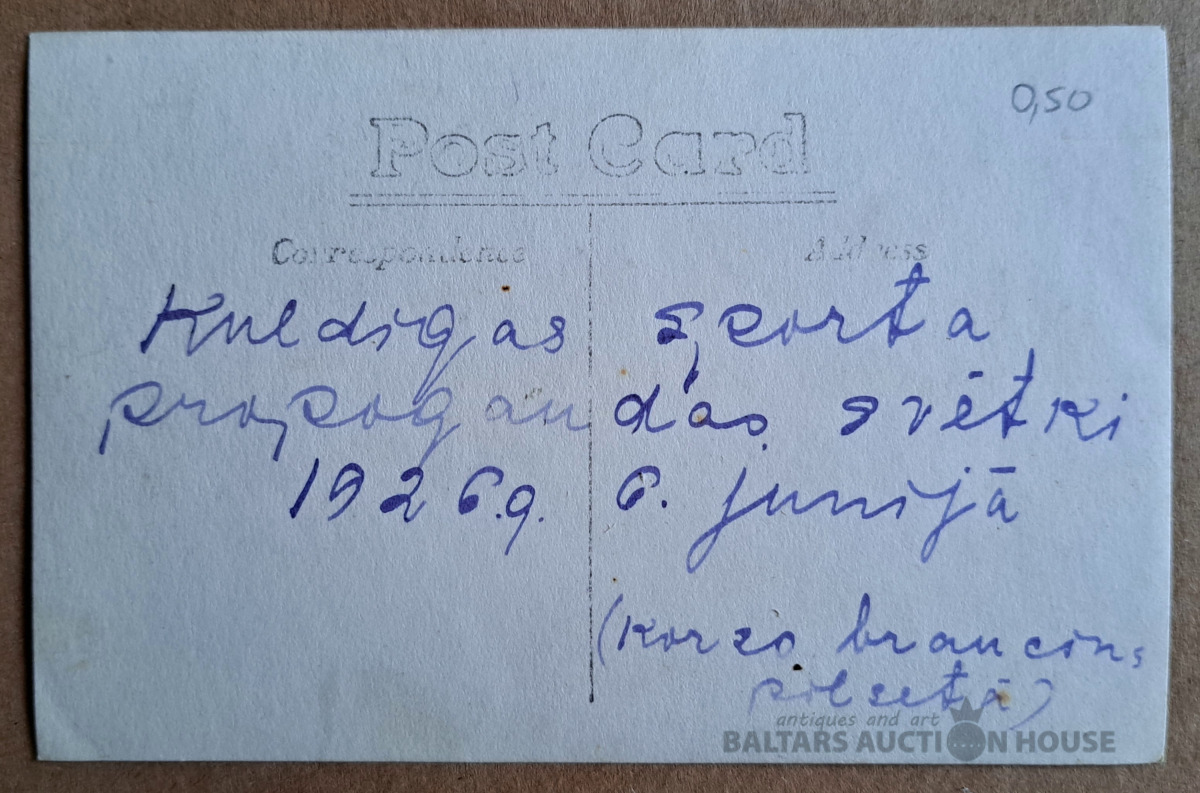 0,50
Post Card
Correspondence Address
Kuldigas sporta
propogandas svētki
1926.g. 6. junijā
(Korzo brauciens
pilsetā)
antiques and art
BALTARS AUCTION HOUSE